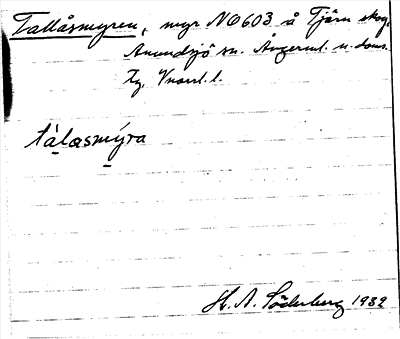 Tallåsmyren, myr NO603 å Tjärn skog
Anundsjö sn. Ångerml. n. doms.
Zg. Vnorrl. l.
tàlasmýra
H. A. Söderberg 1932